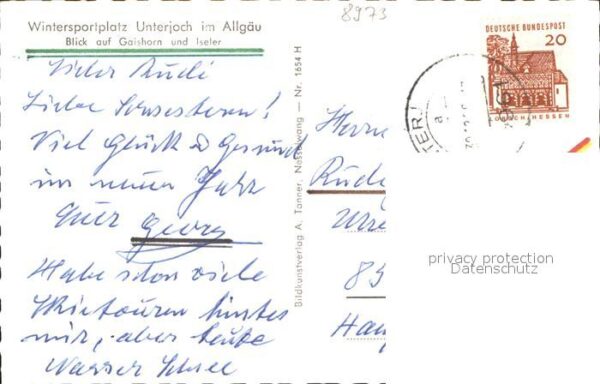 8973
Wintersportplatz Unterjoch im Allgäu
Blick auf Gaishorn und Iseler
DEUTSCHE BUNDESPOST
20
LORSCH/HESSEN
Lieber Rudi
Liebe
Viel Glück & Gesund
im neuen Jahr
Euer Georg
Habe schon viele
Skitouren hinter
mir, aber heute
Wasser Schnee
Bildkunstverlag A. Tanner, Nesselwang — Nr. 1654 H
Herrn
privacy protection
Datenschutz